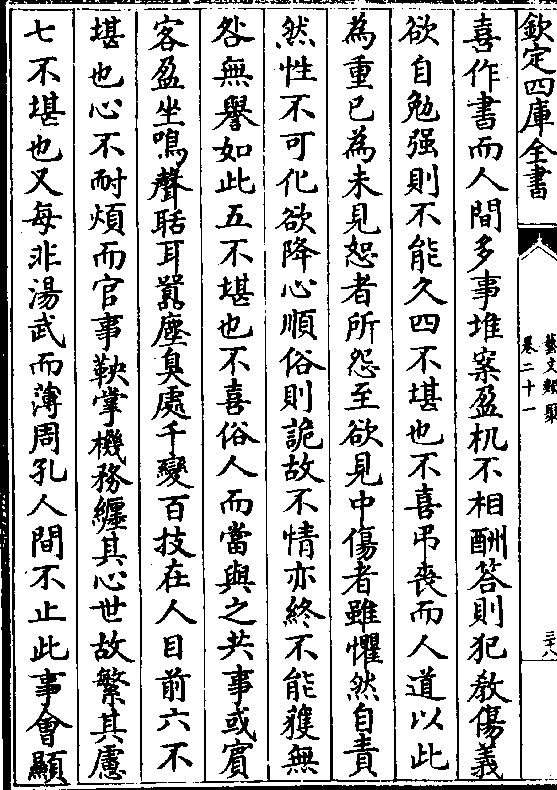 欽定四庫全書
藝文類聚
卷二十一
二十八
喜作書而人間多事堆案盈机不相酬答則犯教傷義
欲自勉强則不能久四不堪也不喜弔喪而人道以此
為重已為未見恕者所怨至欲見中傷者雖懼然自責
然性不可化欲降心順俗則詭故不情亦終不能獲無
咎無譽如此五不堪也不喜俗人而當與之共事或賓
客盈坐鳴聲聒耳囂塵臭處千變百技在人目前六不
堪也心不耐煩而官事鞅掌機務纒其心世故繁其慮
七不堪也又每非湯武而薄周孔人間不止此事會顯